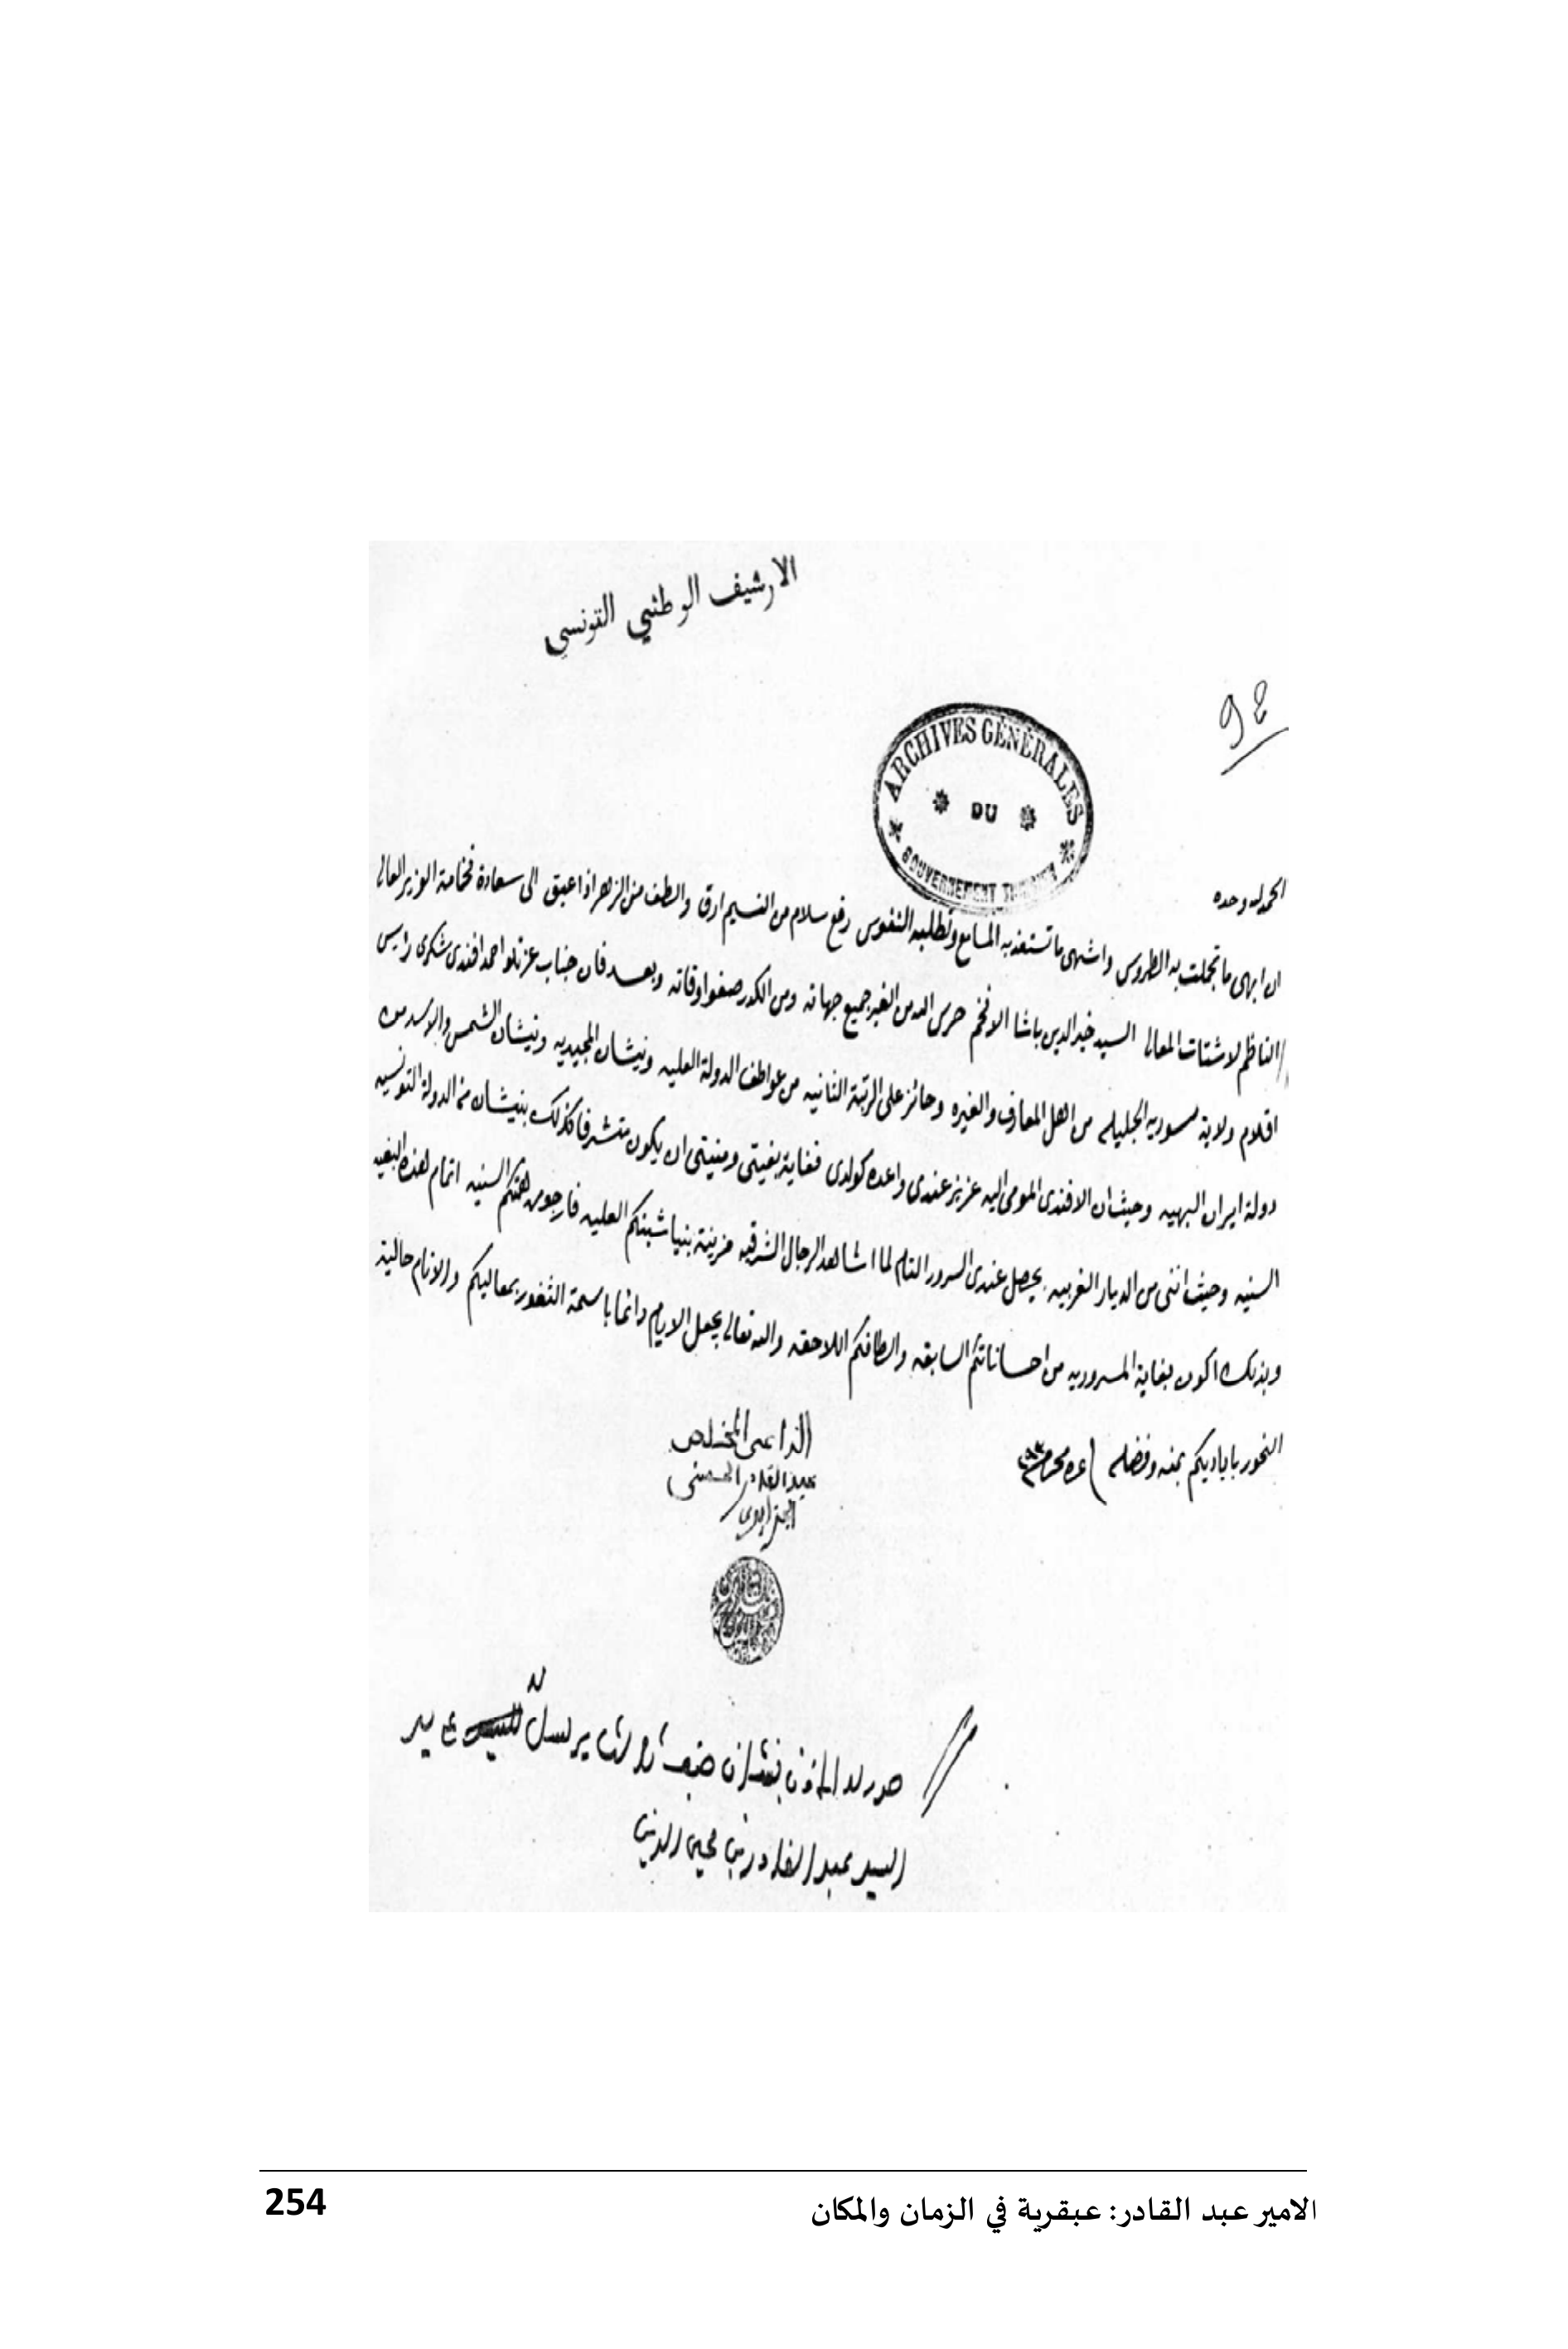 الارشيف الوطني التونسي
ARCHIVES GÉNÉRALES
DU
GOUVERNEMENT
الحمد لله وحده
ان ابهى ما تجملت به الطروس واشهى ما تستعذبه المسامع وتطلبه النفوس رفع سلام من النسيم ارق والطف من الزهر اذا عبق الى سعادة فخامة الوزير العالي
الناظم لاشتات المعالي السيد خير الدين باشا الافخم حرس الله من الغير جميع جهاته ومن الكدر صفو اوقاته وبعد فان جناب عزتلو احمد افندي شكري رئيس
اقلام ولاية سوريه الجليله من اهل المعارف والغيره وحائز على الرتبة الثانيه من عواطف الدولة العليه ونيشان المجيديه ونيشان الشمس والاسد من
دولة ايران البهيه وحيث ان الافندي المومى اليه عزيز عندي واعده كولدي فغاية بغيتي ومنيتي ان يكون متشرفا كذلك بنيشان من الدولة التونسيه
السنيه وحيث انني من الديار الغربيه يحصل عندي السرور التام لما اشاهد الرجال الشرقيه مزينة بنياشينكم العليه فارجو من همتكم السنيه اتمام هذه البغيه
وبذلك اكون بغاية المسروريه من احساناتكم السابقه والطافكم اللاحقه والله تعالى يجعل الايام دائما باسمة الثغور بمعاليكم والانام حالية
النحور باياديكم بمنه وفضله محرم
الداعي المخلص
عبد القادر الحسني
الجزايري
السيد عبد القادر بن محيي الدين
254
الامير عبد القادر: عبقرية في الزمان والمكان